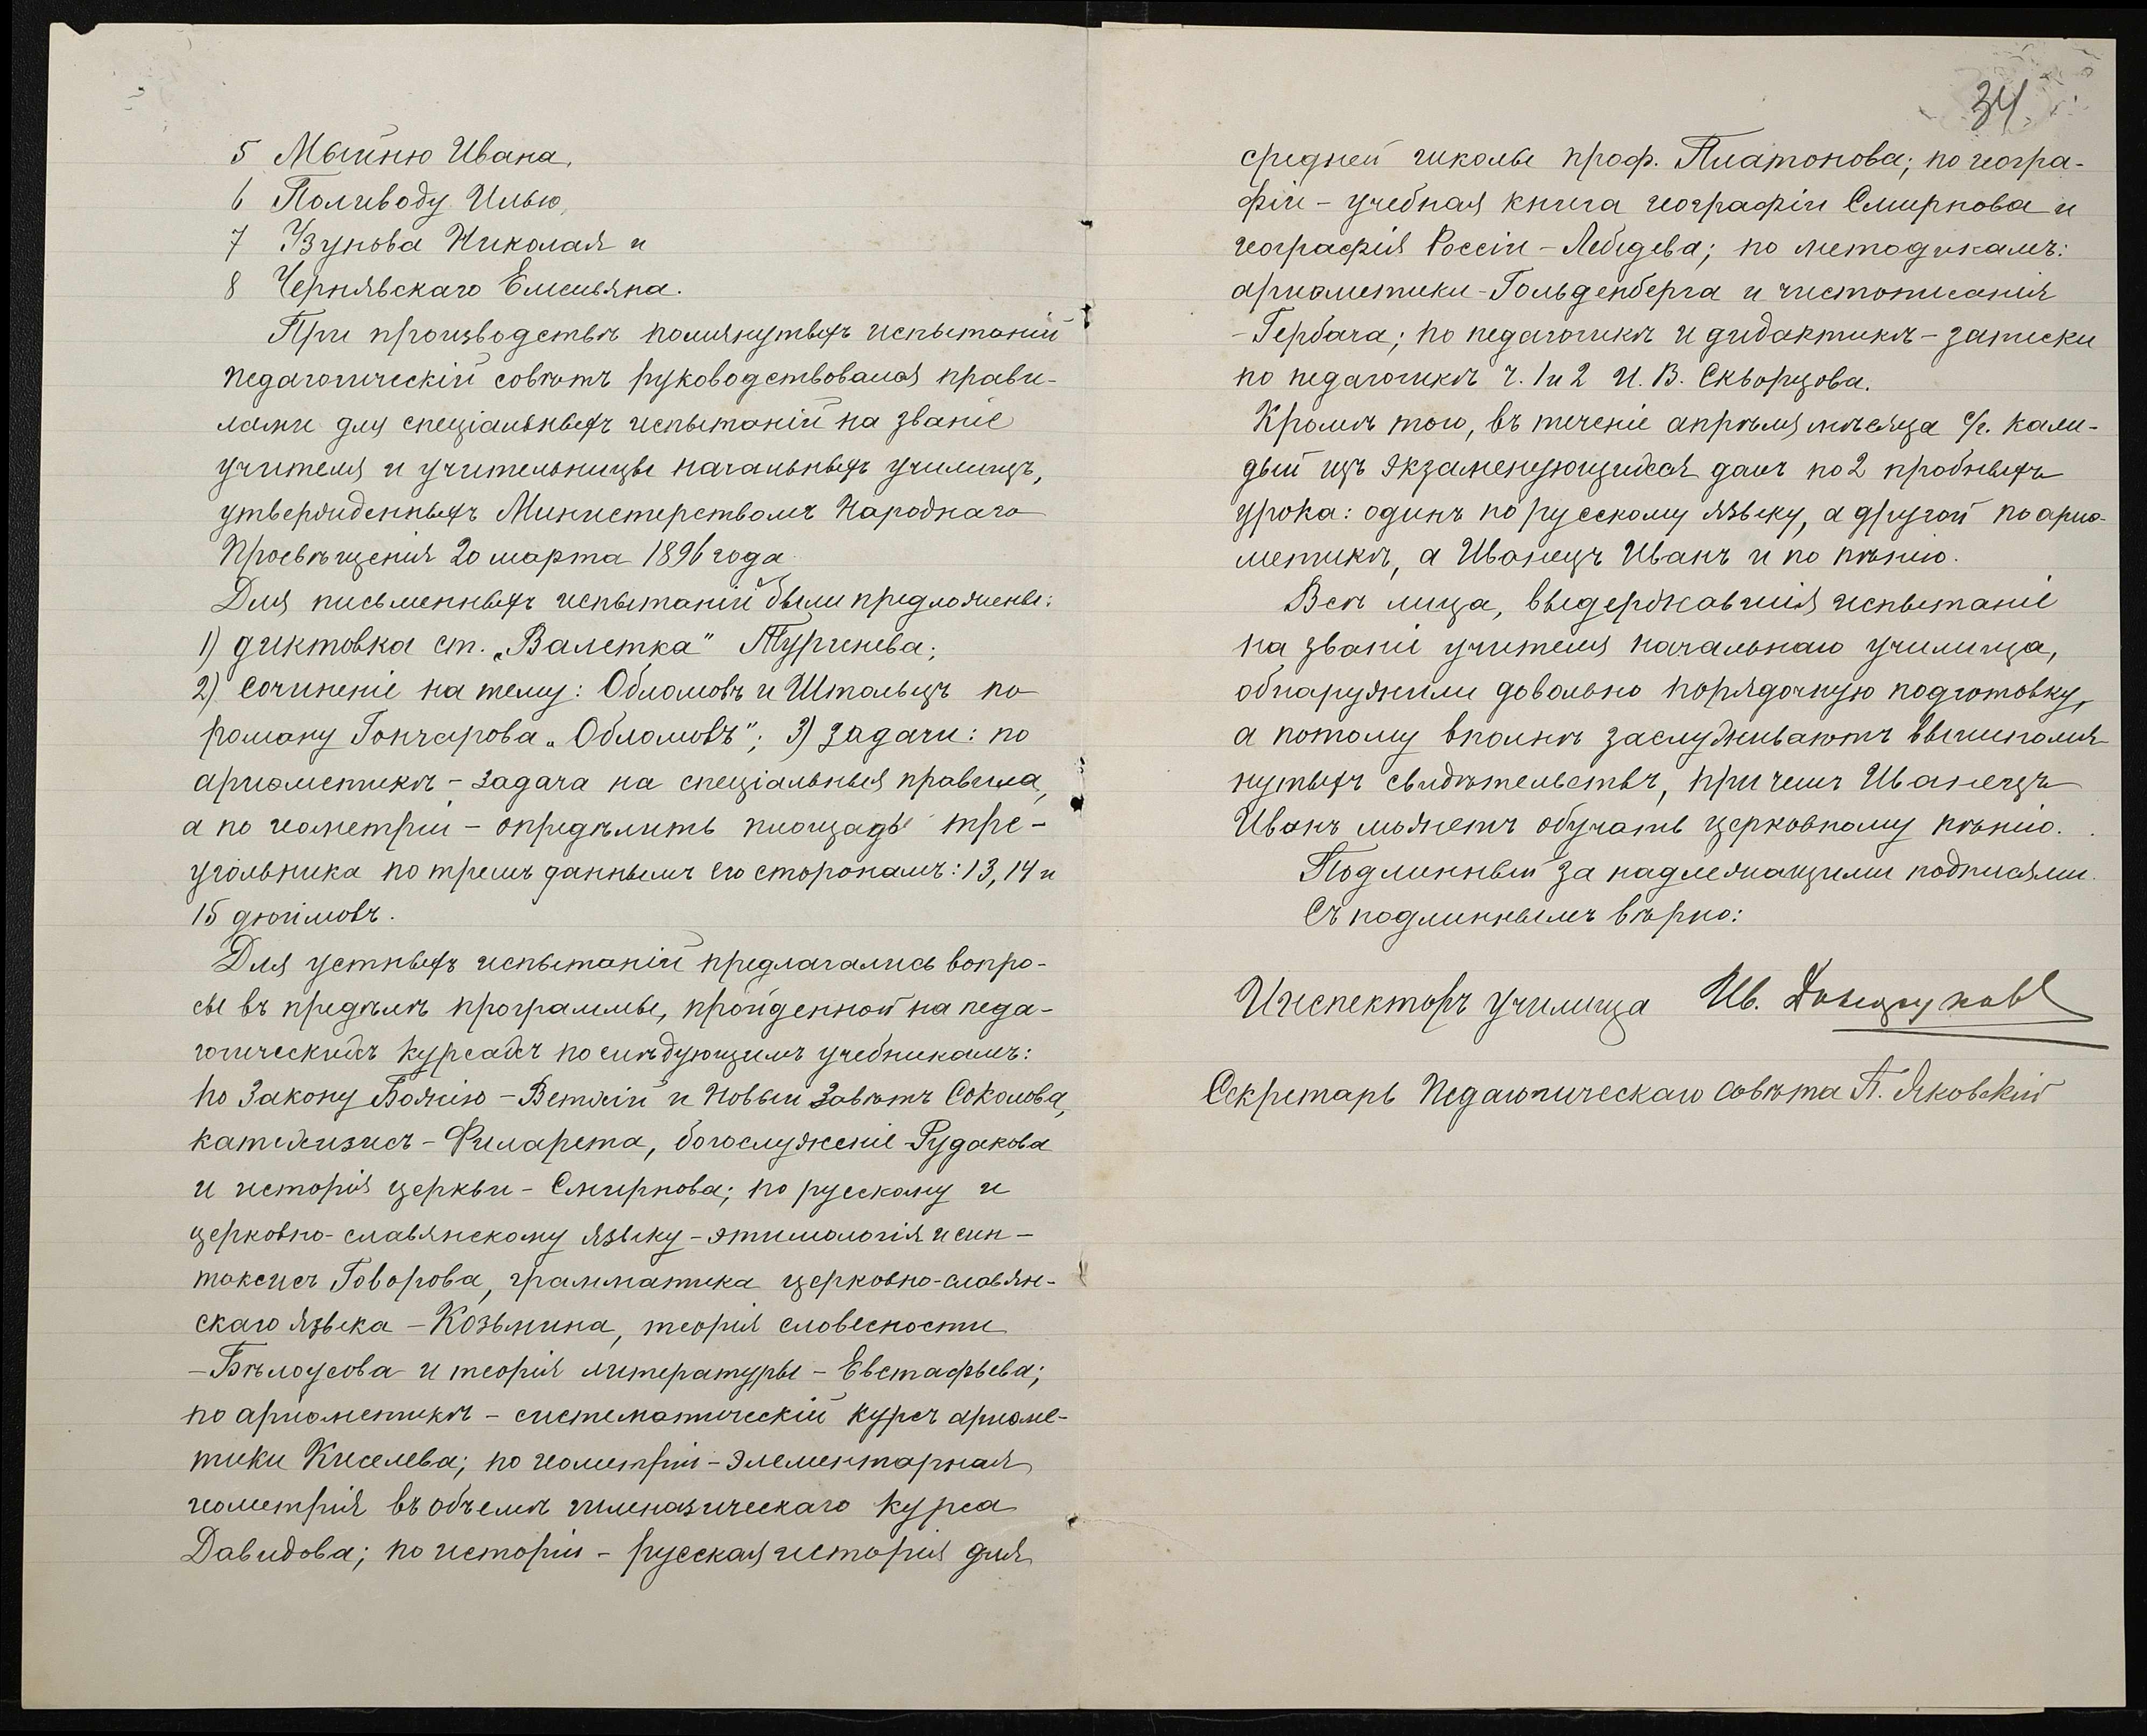 5 Мыйню Ивана,
6 Поливоду Илью,
7 Узунова Николая и
8 Чернявскаго Емельяна.
При производствѣ помянутыхъ испытаній
педагогическій совѣтъ руководствовался прави-
лами для спеціальныхъ испытаній на званіе
учителя и учительницы начальныхъ училищъ,
утвержденныхъ Министерствомъ Народнаго
Просвѣщенія 20 марта 1896 года
Для письменныхъ испытаній были предложены:
1) диктовка ст. „Валетка" Тургенева;
2) сочиненіе на тему: Обломовъ и Штольцъ по
роману Гончарова „Обломовъ"; 3) задачи: по
ариѳметикѣ - задача на спеціальныя правила,
а по геометріи - опредѣлить площадь тре-
угольника по тремъ даннымъ его сторонамъ: 13, 14 и
15 дюймовъ.
Для устныхъ испытаній предлагались вопро-
сы въ предѣлѣ программы, пройденной на педа-
гогическихъ курсахъ по слѣдующимъ учебникамъ:
по Закону Божію - Ветхій и Новый Завѣтъ Соколова,
катехизисъ - Филарета, богослуженіе - Рудакова
и исторія церкви - Смирнова; по русскому и
церковно-славянскому языку - этимологія и син-
таксисъ Говорова, грамматика церковно-славян-
скаго языка - Козьмина, теорія словесности
- Бѣлоусова и теорія литературы - Евстафьева;
по ариѳметикѣ - систематическій курсъ ариѳме-
тики Киселева; по геометріи - элементарная
геометрія въ объемѣ гимназическаго курса
Давидова; по исторіи - русская исторія для
34
средней школы проф. Платонова; по геогра-
фіи - учебная книга географіи Смирнова и
географія Россіи - Лебедева; по методикамъ:
ариѳметики - Гольденберга и чистописанія
- Гербача; по педагогикѣ и дидактикѣ - записки
по педагогикѣ ч. 1 и 2 И. В. Скворцова.
Кромѣ того, въ теченіе апрѣля мѣсяца с/г. каж-
дый изъ экзаменующихся далъ по 2 пробныхъ
урока: одинъ по русскому языку, а другой по ариѳ-
метикѣ, а Иванецъ Иванъ и по пѣнію.
Всѣ лица, выдержавшія испытаніе
на званіе учителя начальнаго училища,
обнаружили довольно порядочную подготовку,
а потому вполнѣ заслуживаютъ вышепомя-
нутыхъ свидѣтельствъ, при чемъ Иванецъ
Иванъ можетъ обучать церковному пѣнію.
Подлинный за надлежащими подписями.
Съ подлиннымъ вѣрно:
Инспекторъ училища Ив.
Секретарь Педагогическаго совѣта П. Яковскій